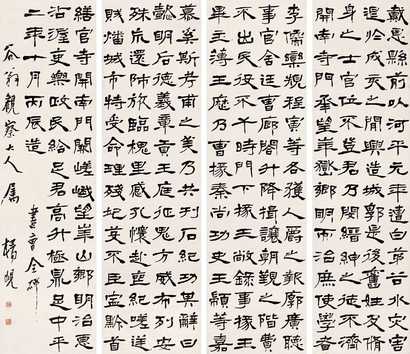 戴恩縣前以河平元年遭白茅谷水灾害
退於戌亥之間興造城郭是後舊姓及修
身之士官位不登君乃閔縉紳之徒不濟
開南寺門承望華嶽鄉明而治庶使學者
李儒欒規程寅等各獲人爵之報廓廣聽
事官舍廷曹廊閤升降揖讓朝覲之階費
不出民役不干時門下掾王敞錄事掾王
畢主簿王歷户曹掾秦尚功曹史王顓等嘉
慕奚斯考甫之美乃共刊石紀功其辭曰
懿明后德義章貢王庭征鬼方威布烈安
殊荒還師旅臨槐里感孔懷赴喪紀嗟逆
賊燔城市特受命理殘圮芟不臣寧黔首
繕官寺開南門闕嵯峨望華山鄉明治惠
沾渥吏樂政民給足君高升極鼎足中平
二年十月丙辰造
谷翁觀察大人屬
書曹全碑
楊峴